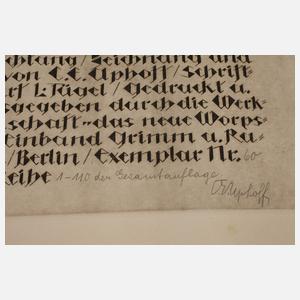 chtung/Zeichnung und
von C.E. Uphoff/Schrift
L. Tügel/Gedruckt u.
sgegeben durch die Werk-
schaft„das neue Worps-
Einband Grimm u. Ru-
/Berlin/Exemplar Nr. 60
eihe 1-110 der Gesamtauflage
C.E. Uphoff